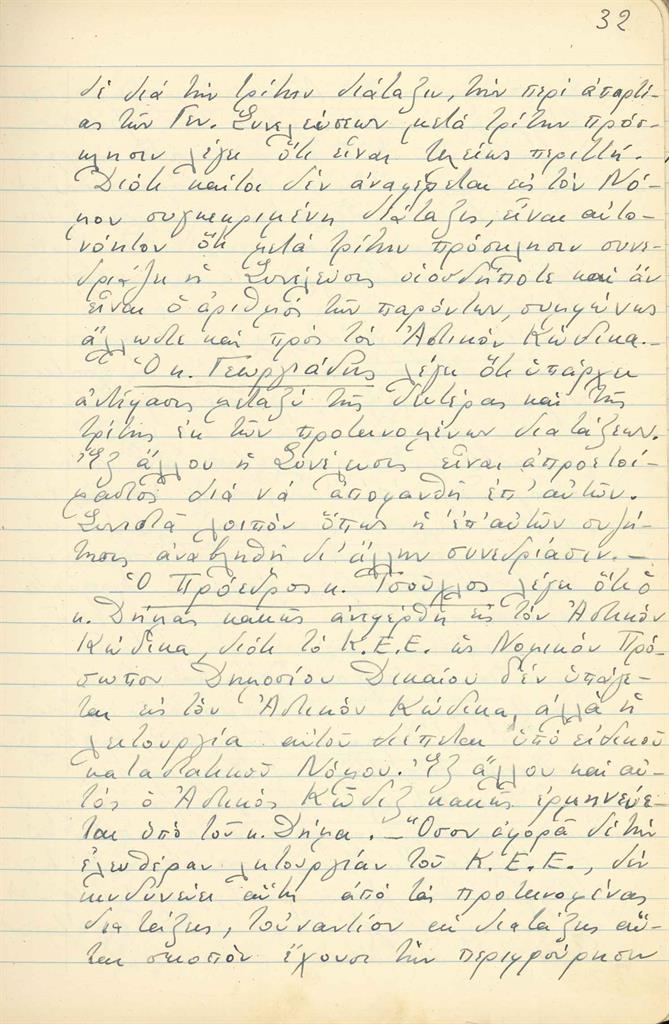 32
δέ διά τήν τρίτην διάταξιν, τήν περί ἀπαρτί-
ας τῶν Γεν. Συνελεύσεων μετά τρίτην πρόσ-
κλησιν λέγει ὅτι εἶναι τελείως περιττή.
Διότι καίτοι δέν ἀναφέρεται εἰς τόν Νό-
μον συγκεκριμένη διάταξις, εἶναι αὐτο-
νόητον ὅτι μετά τρίτην πρόσκλησιν συνε-
δριάζει ἡ Συνέλευσις οἱοσδήποτε καί ἄν
εἶναι ὁ ἀριθμός τῶν παρόντων, συμφώνως
ἄλλωστε καί πρός τόν Ἀστικόν Κώδικα.—
Ὁ κ. Γεωργιάδης λέγει ὅτι ὑπάρχει
ἀντίφασις μεταξύ τῆς δευτέρας καί τῆς
τρίτης ἐκ τῶν προτεινομένων διατάξεων.
Ἐξ ἄλλου ἡ Συνέλευσις εἶναι ἀπροετοί-
μαστος διά νά ἀποφανθῇ ἐπ' αὐτῶν.
Συνιστᾶ λοιπόν ὅπως ἡ ἐπ' αὐτῶν συζή-
τησις ἀναβληθῇ δι' ἄλλην συνεδρίασιν.—
Ὁ Πρόεδρος κ. Τσοῦλος λέγει ὅτι ὁ
κ. Δήμας κακῶς ἀνεφέρθη εἰς τόν Ἀστικόν
Κώδικα, διότι τό Κ.Ε.Ε. ὡς Νομικόν Πρό-
σωπον Δημοσίου Δικαίου δέν ὑπάγε-
ται εἰς τόν Ἀστικόν Κώδικα, ἀλλά ἡ
λειτουργία αὐτοῦ διέπεται ὑπό εἰδικοῦ
καταστατικοῦ Νόμου. Ἐξ ἄλλου καί αὐ-
τός ὁ Ἀστικός Κῶδιξ κακῶς ἑρμηνεύε-
ται ὑπό τοῦ κ. Δήμα.— Ὅσον ἀφορᾶ δέ τήν
ἐλευθέραν λειτουργίαν τοῦ Κ.Ε.Ε., δέν
κινδυνεύει αὕτη ἀπό τάς προτεινομένας
διατάξεις, τοὐναντίον αἱ διατάξεις αὗ-
ται σκοπόν ἔχουσι τήν περιφρούρησιν